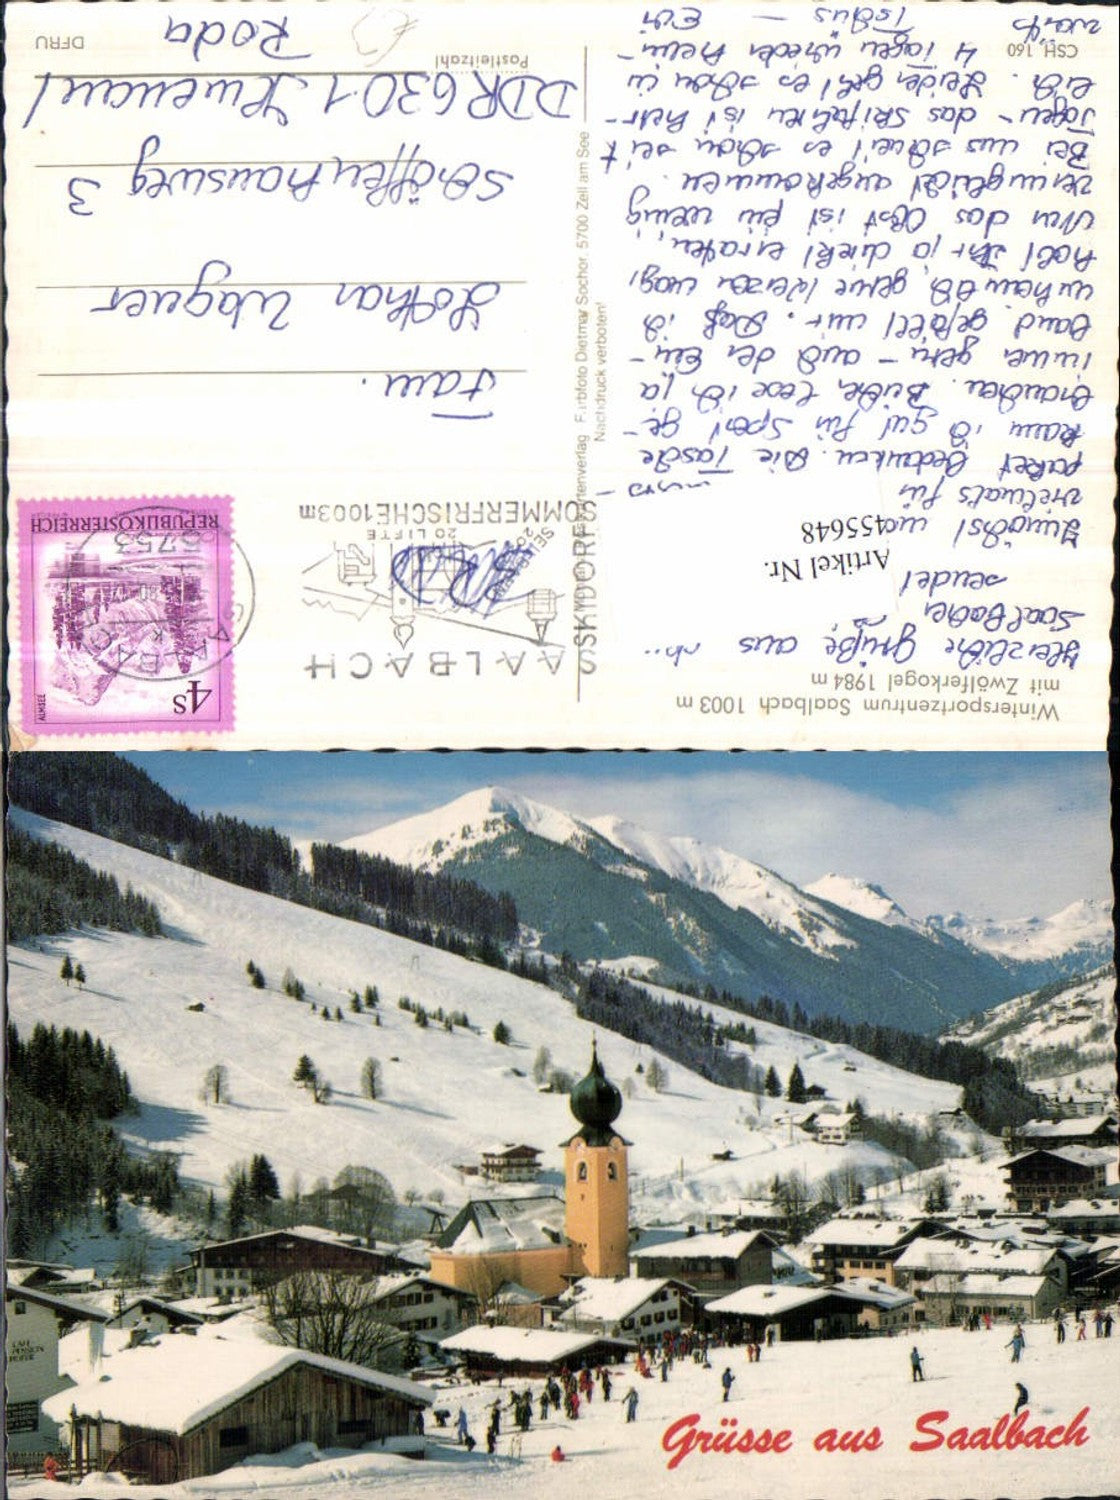 Wintersportzentrum Saalbach 1003 m
mit Zwölferkogel 1984 m
Herzliche Grüße aus
Saalbach
sendet
Artikel Nr.
455648
Zunächst
vielmals für
paket bedanken. Die Tasche
kann ich gut für Sport ge-
brauchen. Bücher lese ich ja
immer gern - auch der Ein-
band gefällt mir. Daß ich
gerne
habt Ihr ja direkt erraten,
Nur das Obst ist ein wenig
verunglückt angekommen.
Bei uns schneit es schon seit
Tagen - das Skifahren ist herr-
lich. Leider geht es schon in
4 Tagen wieder heim-
wärts
Tschüs - Eri
CSH 160
SAALBACH
SKIDORF
20 LIFTE
SOMMERFRISCHE 1003m
BRD
SAALBACH
5753
4S
ALMSEE
REPUBLIK ÖSTERREICH
Farbfoto Dietmar Sochor, 5700 Zell am See
Nachdruck verboten!
Fam.
Lothar Wagner
Schöffenhausweg 3
DDR 6301
Postleitzahl
Roda
DFRU
Grüsse aus Saalbach